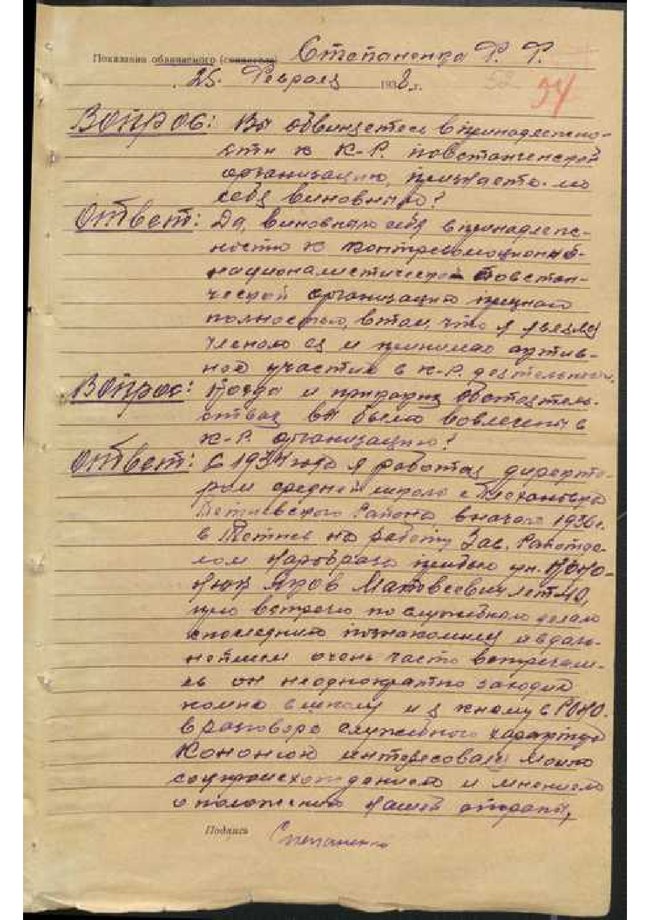 Показана обвиняемого (свидетеля) Степаненка Ф. Ф.
25. Февраля 1938 г. 52 94
Вопрос: Вы обвиняетесь в принадлежно-
сти к К-Р. повстанческой
организацию, признаете-ли
себя виновным?
Ответ: Да, виновным себя в принадлеж-
ностю к контрреволюционной-
националистической повстан-
ческой организацию признаю
полностью, в том, что я являлся
членом ея и принимал актив-
ной участие в к-р. деятельности.
Вопрос: Когда и при каких обстоятель-
ствах вы были вовлечены в
к-р. организацию?
Ответ: С 1934 года я работал директо-
ром средней школы с. Плехановка
Тетиевского Района вначале 1936 г.
в Тетиев на работу Зав. Райотде-
лом Наробраза прибыл ун. Коно-
нюк Яков Матвеевич лет 40,
при встрече по служебного делам
споследним познакомился и вдаль-
нейшем очень часто встречали-
сь он неоднократно заходил
комне в школу и я кнему в РОНО.
в разговоре служебного характера
Кононюк интересовался моим
соцпроисхождением и мнением
о положению нашей страны,
Подпись Степаненко